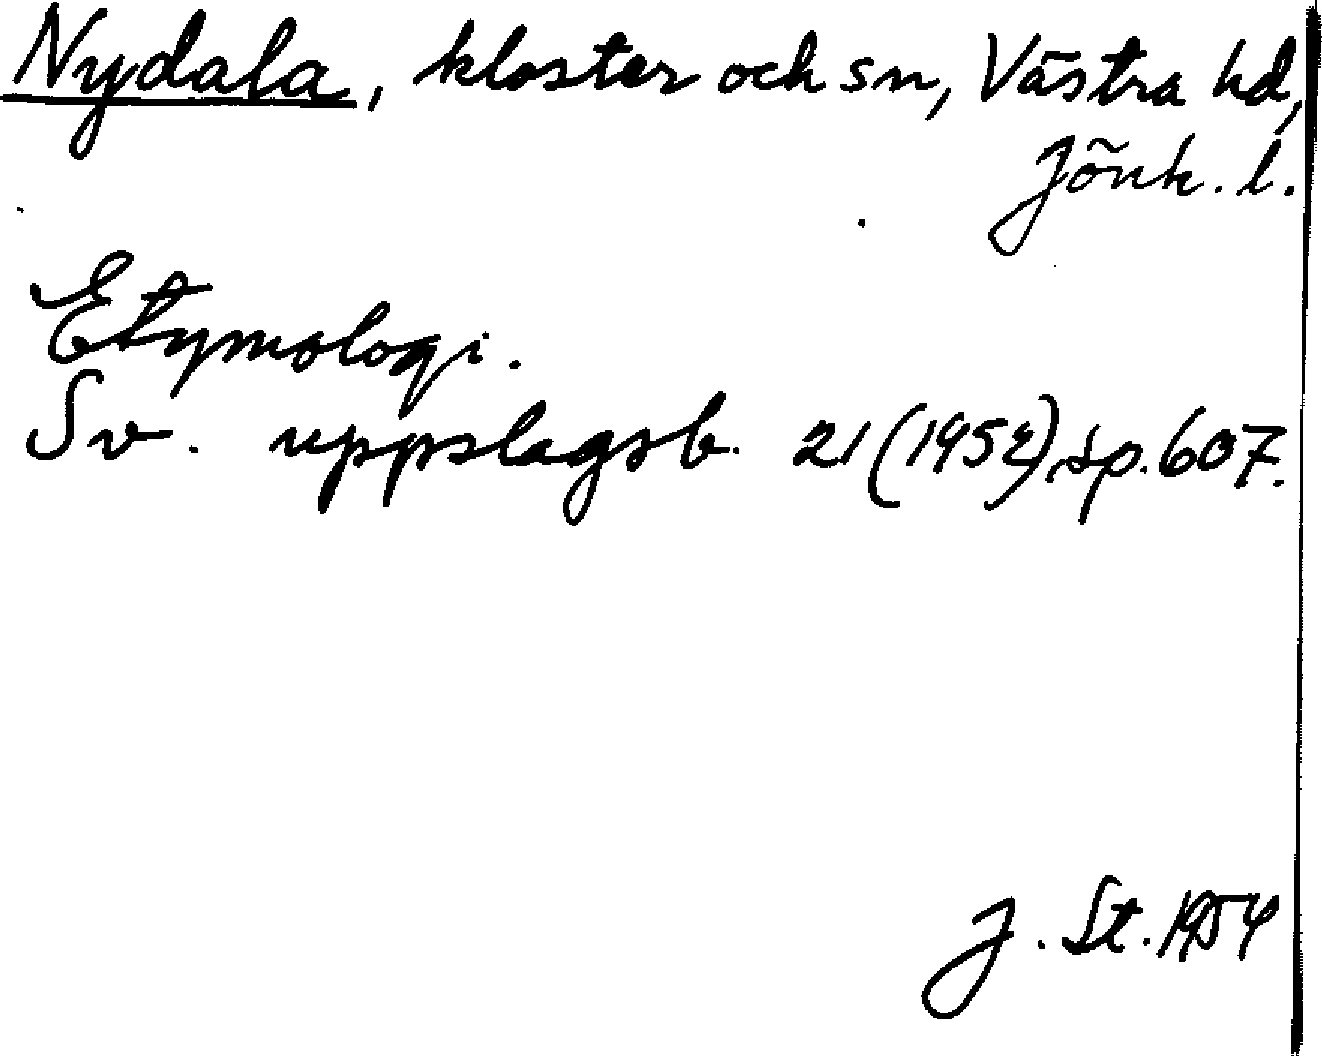 Nydala, kloster och sn, Västra hd,
Jönk. l.
Etymologi.
Sv. uppslagsb. 21 (1952), sp. 607.
J. St. 1954